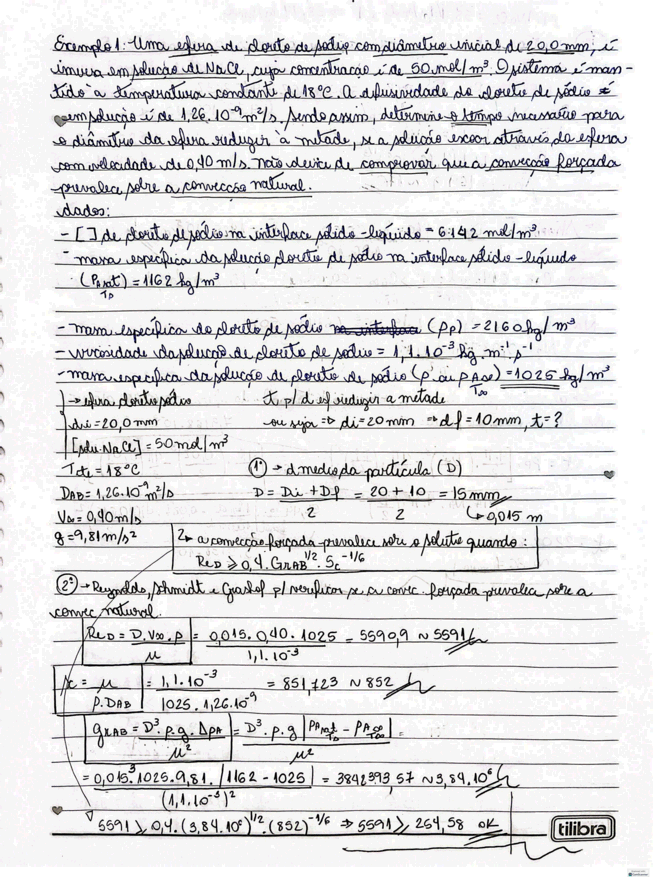 Exemplo 1: Uma esfera de cloreto de sódio com diâmetro inicial de 20,0 mm, é
imersa em solução de NaCl, cuja concentração é de 50 mol/m³. O sistema é man-
tido à temperatura constante de 18°C. A difusividade do cloreto de sódio
em solução é de 1,26.10⁻⁹ m²/s. Sendo assim, determine o tempo necessário para
o diâmetro da esfera reduzir à metade, se a solução escoar através da esfera
com velocidade de 0,40 m/s. Não deixe de comprovar que a convecção forçada
prevalece sobre a convecção natural.
dados:
- [ ] de cloreto de sódio na interface sólido-líquido = 6.142 mol/m³
- massa específica da solução cloreto de sódio na interface sólido-líquido
(ρAsat) = 1162 kg/m³
T₀
- massa específica do cloreto de sódio na interface (ρp) = 2160 kg/m³
- viscosidade da solução de cloreto de sódio = 1,1.10⁻³ kg.m⁻¹.s⁻¹
- massa específica da solução de cloreto de sódio (ρ ou ρA∞) = 1025 kg/m³
T∞
→ esfera cloreto sódio t p/ d esf reduzir a metade
di = 20,0 mm ou seja ⇒ di = 20 mm ⇒ df = 10 mm, t = ?
[solu. NaCl] = 50 mol/m³
Tcte = 18°C 1º → d medio da partícula (D)
DAB = 1,26.10⁻⁹ m²/s D = Di + Df / 2 = 20 + 10 / 2 = 15 mm
V∞ = 0,40 m/s ↳ 0,015 m
g = 9,81 m/s² 2 → a convecção forçada prevalece sobre o soluto quando:
ReD ≥ 0,4. GrAB^1/2 . Sc^-1/6
2º → Reynolds, Schmidt e Grashof p/ verificar se a convec. forçada prevalece sobre a
convec natural.
ReD = D.V∞.ρ / μ = 0,015. 0,40. 1025 / 1,1.10⁻³ = 5590,9 ~ 5591
Sc = μ / ρ.DAB = 1,1.10⁻³ / 1025. 1,26.10⁻⁹ = 851,723 ~ 852
GRAB = D³.ρ.g.ΔρA / μ² = D³.ρ.g |ρAsat T₀ - ρA∞ T∞| / μ² =
= 0,015³.1025.9,81. |1162 - 1025| / (1,1.10⁻³)² = 3842393,57 ~ 3,84.10⁶
5591 ≥ 0,4. (3,84.10⁶)^1/2 . (852)^-1/6 ⇒ 5591 ≥ 254,58 OK
tilibra